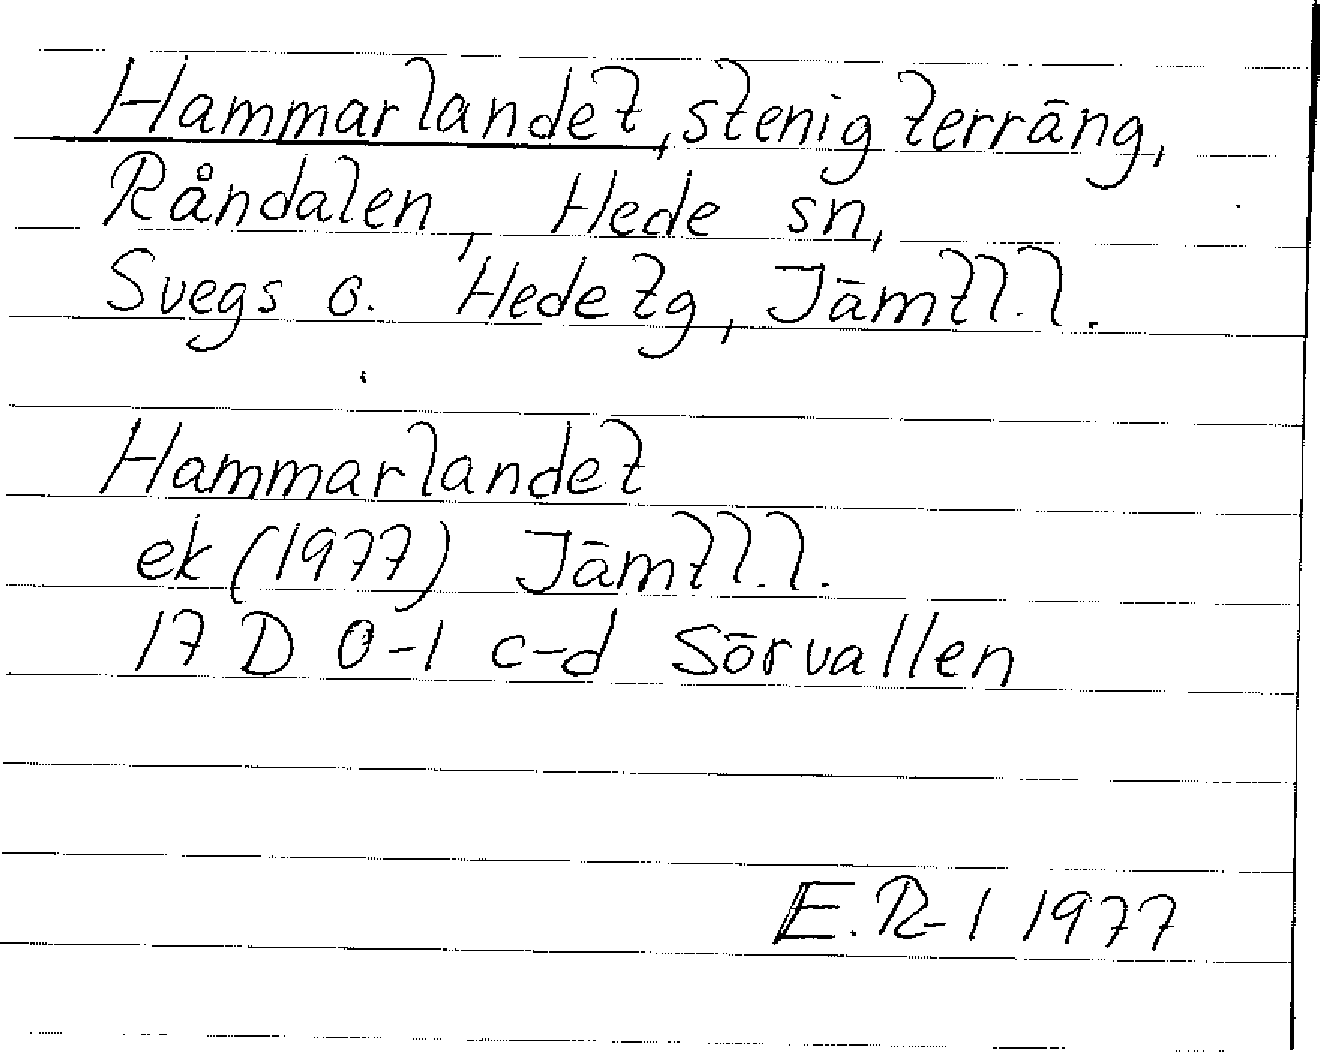 Hammarlandet, stenig terräng,
Råndalen, Hede sn,
Svegs o. Hede tg, Jämtl. l.
Hammarlandet
ek (1977) Jämtl. l.
17 D 0-1 c-d Sörvallen
E. R-l 1977